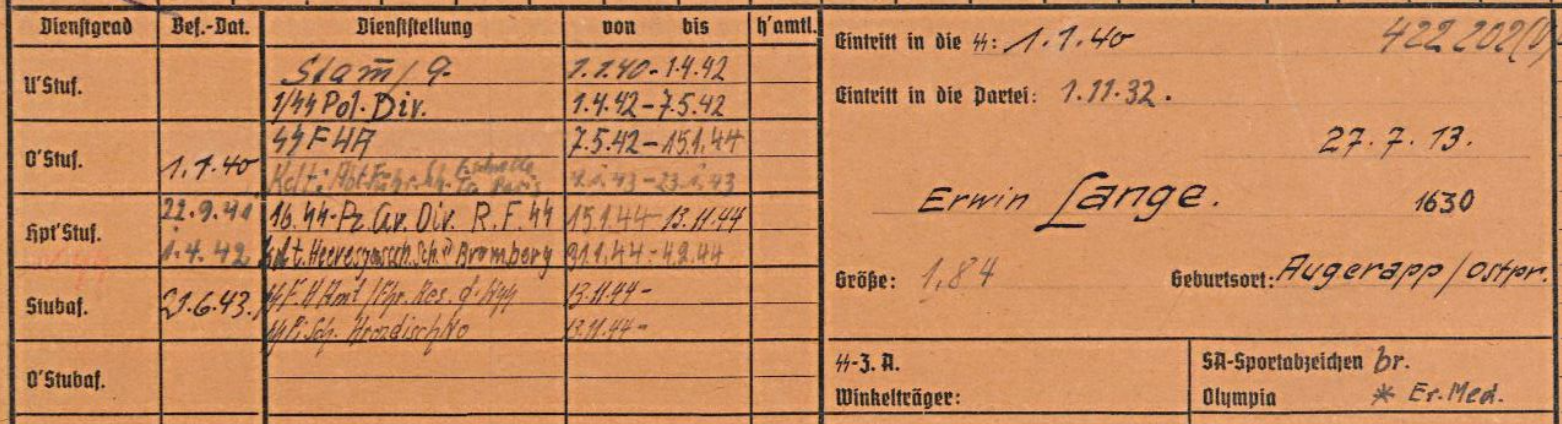 Dienstgrad Bef.-Dat. Dienststellung von bis h'amtl.
U'Stuf. Stam̄/9. 1.1.40 - 1.4.42
1/ϟϟ Pol. Div. 1.4.42 - 7.5.42
O'Stuf. 1.1.40 ϟϟ F HA 7.5.42 - 15.1.44
Kdt: Abt. Führ. Lh. - 23.1.43
Hpt'Stuf. 22.9.41 16. ϟϟ-Pz. Gr. Div. R.F.ϟϟ 15.1.44 - 13.11.44
1.4.42 Kdt. Heeresgassch. Sch. Bromberg 31.1.44 - 4.2.44
Stubaf. 21.6.43. ϟϟ F. H Amt / Fhr. Res. d. Wϟϟ 13.11.44 -
ϟϟ Pi. Sch. Hradischko 13.11.44 -
O'Stubaf.
Eintritt in die ϟϟ: 1.1.40 422 202 (V)
Eintritt in die Partei: 1.11.32.
27.7.13.
Erwin Lange. 1630
Größe: 1,84 Geburtsort: Augerapp/Ostpr.
ϟϟ-Z. A.
Winkelträger:
SA-Sportabzeichen br.
Olympia * Er. Med.